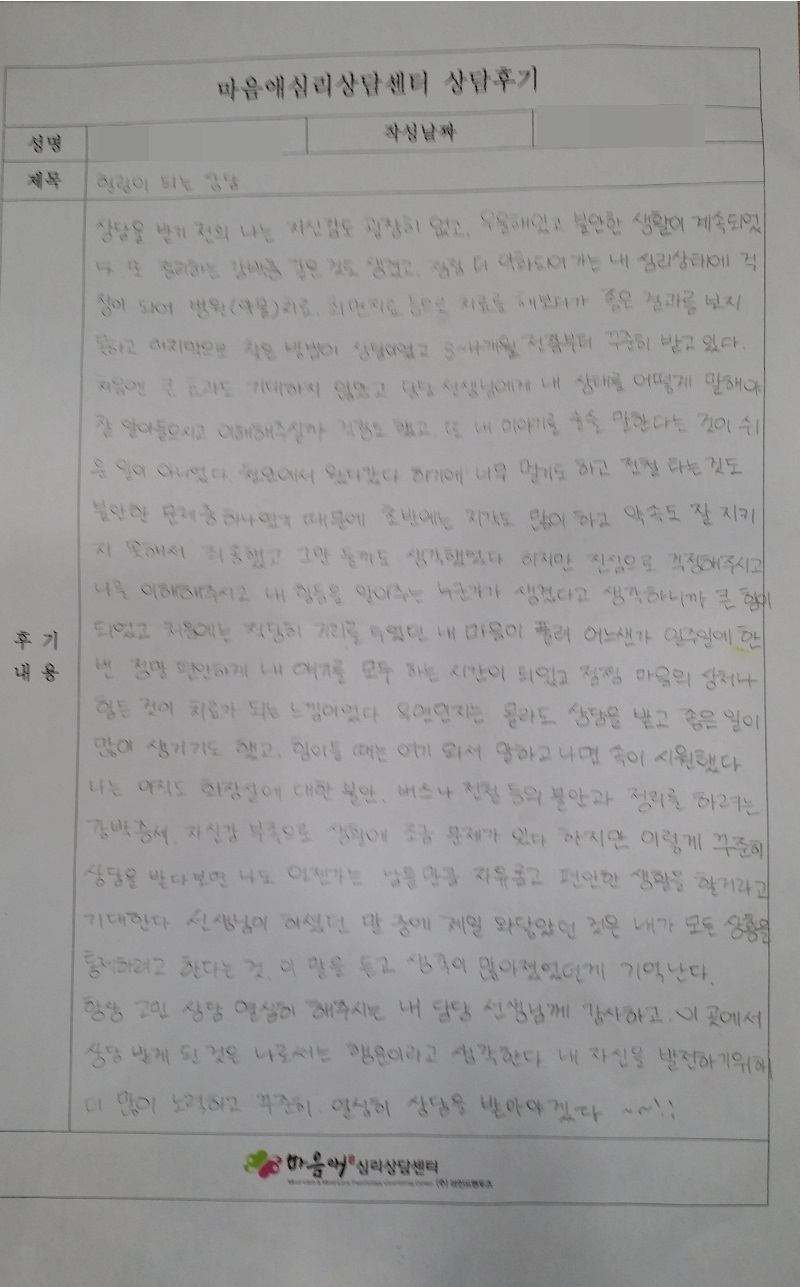 마음애심리상담센터 상담후기
성명 작성날짜
제목 힐링이 되는 상담
상담을 받기 전의 나는 자신감도 굉장히 없고, 우울해있고 불안한 생활이 계속되었
다 또 정리하는 강박증 같은 것도 생겼고, 점점 더 악화되어가는 내 심리상태에 걱
정이 되어 병원(약물)치료, 최면치료 등으로 치료를 해보다가 좋은 결과를 보지
못하고 마지막으로 찾은 방법이 상담이었고 3~4개월 전쯤부터 꾸준히 받고 있다.
처음엔 큰 효과도 기대하지 않았고 담당 선생님에게 내 상태를 어떻게 말해야
잘 알아들으시고 이해해주실까 걱정도 했고, 또 내 이야기를 술술 말한다는 것이 쉬
운 일이 아니었다. 에서 왔다갔다 하기에 너무 멀기도 하고 전철 라는것도
불안한 문제중하나였기 때문에 초반에는 지각도 많이 하고 약속도 잘 지키
지 못해서 죄송했고 그만 둘까도 생각했었다 하지만 진심으로 걱정해주시고
나를 이해해주시고 내 힘듦을 알아주는 누군가가 생겼다고 생각하니까 큰 힘이
되었고 처음에는 적당히 거리를 두었던 내 마음이 풀려 어느샌가 일주일에 한
번 정말 편안하게 내 얘기를 모두 하는 시간이 되었고 점점 마음의 상처나
힘든 것이 치료가 되는 느낌이었다 우연인지는 몰라도 상담을 받고 좋은 일이
많이 생기기도 했고, 힘이들 때는 여기 와서 말하고나면 속이 시원했다
나는 아직도 화장실에 대한 불안, 버스나 전철 등의 불안과 정리를 하려는
강박증세, 자신감 부족으로 생활에 조금 문제가 있다 하지만 이렇게 꾸준히
상담을 받다보면 나도 언젠가는 남들만큼 자유롭고 편안한 생활을 할거라고
기대한다 선생님이 하셨던 말 중에 제일 와닿았던 것은 내가 모든 상황을
통제하려고 한다는 것, 이 말을 듣고 생각이 많아졌었던게 기억난다.
항상 고민 상담 열심히 해주시는 내 담당 선생님께 감사하고, 이 곳에서
상담 받게 된 것은 나로써는 행운이라고 생각한다 내 자신을 발전하기위해
더 많이 노력하고 꾸준히 열심히 상담을 받아야겠다 ~~!!
후기
내용
마음애 심리상담센터